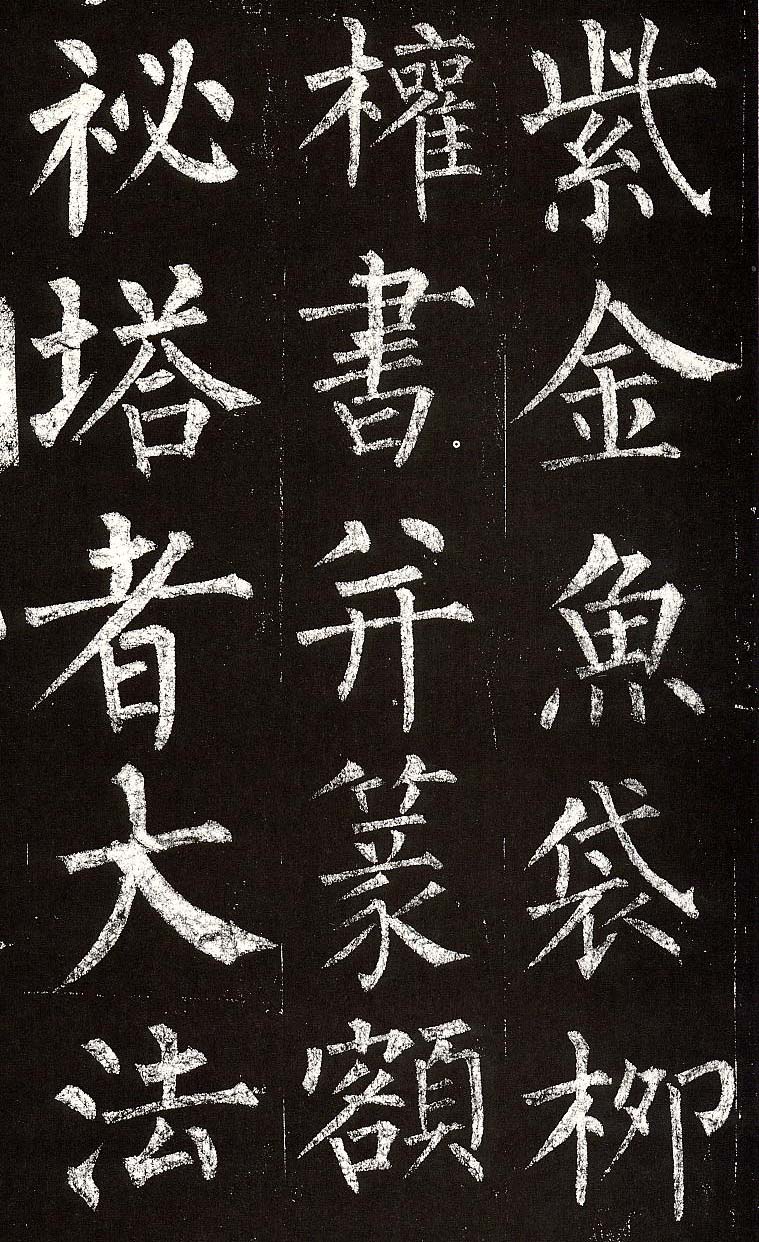 紫金魚袋柳
權書并篆額
祕塔者大法